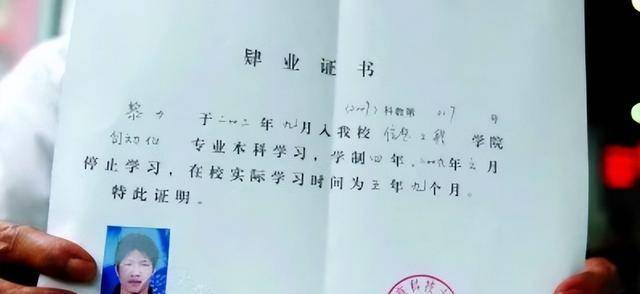 肄业证书
(2009)科教第 117 号
黎力 于二〇〇二年九月入我校信息工程学院
专业本科学习，学制四年，二〇〇九年 月
停止学习，在校实际学习时间为五年九个月。
特此证明。
科技